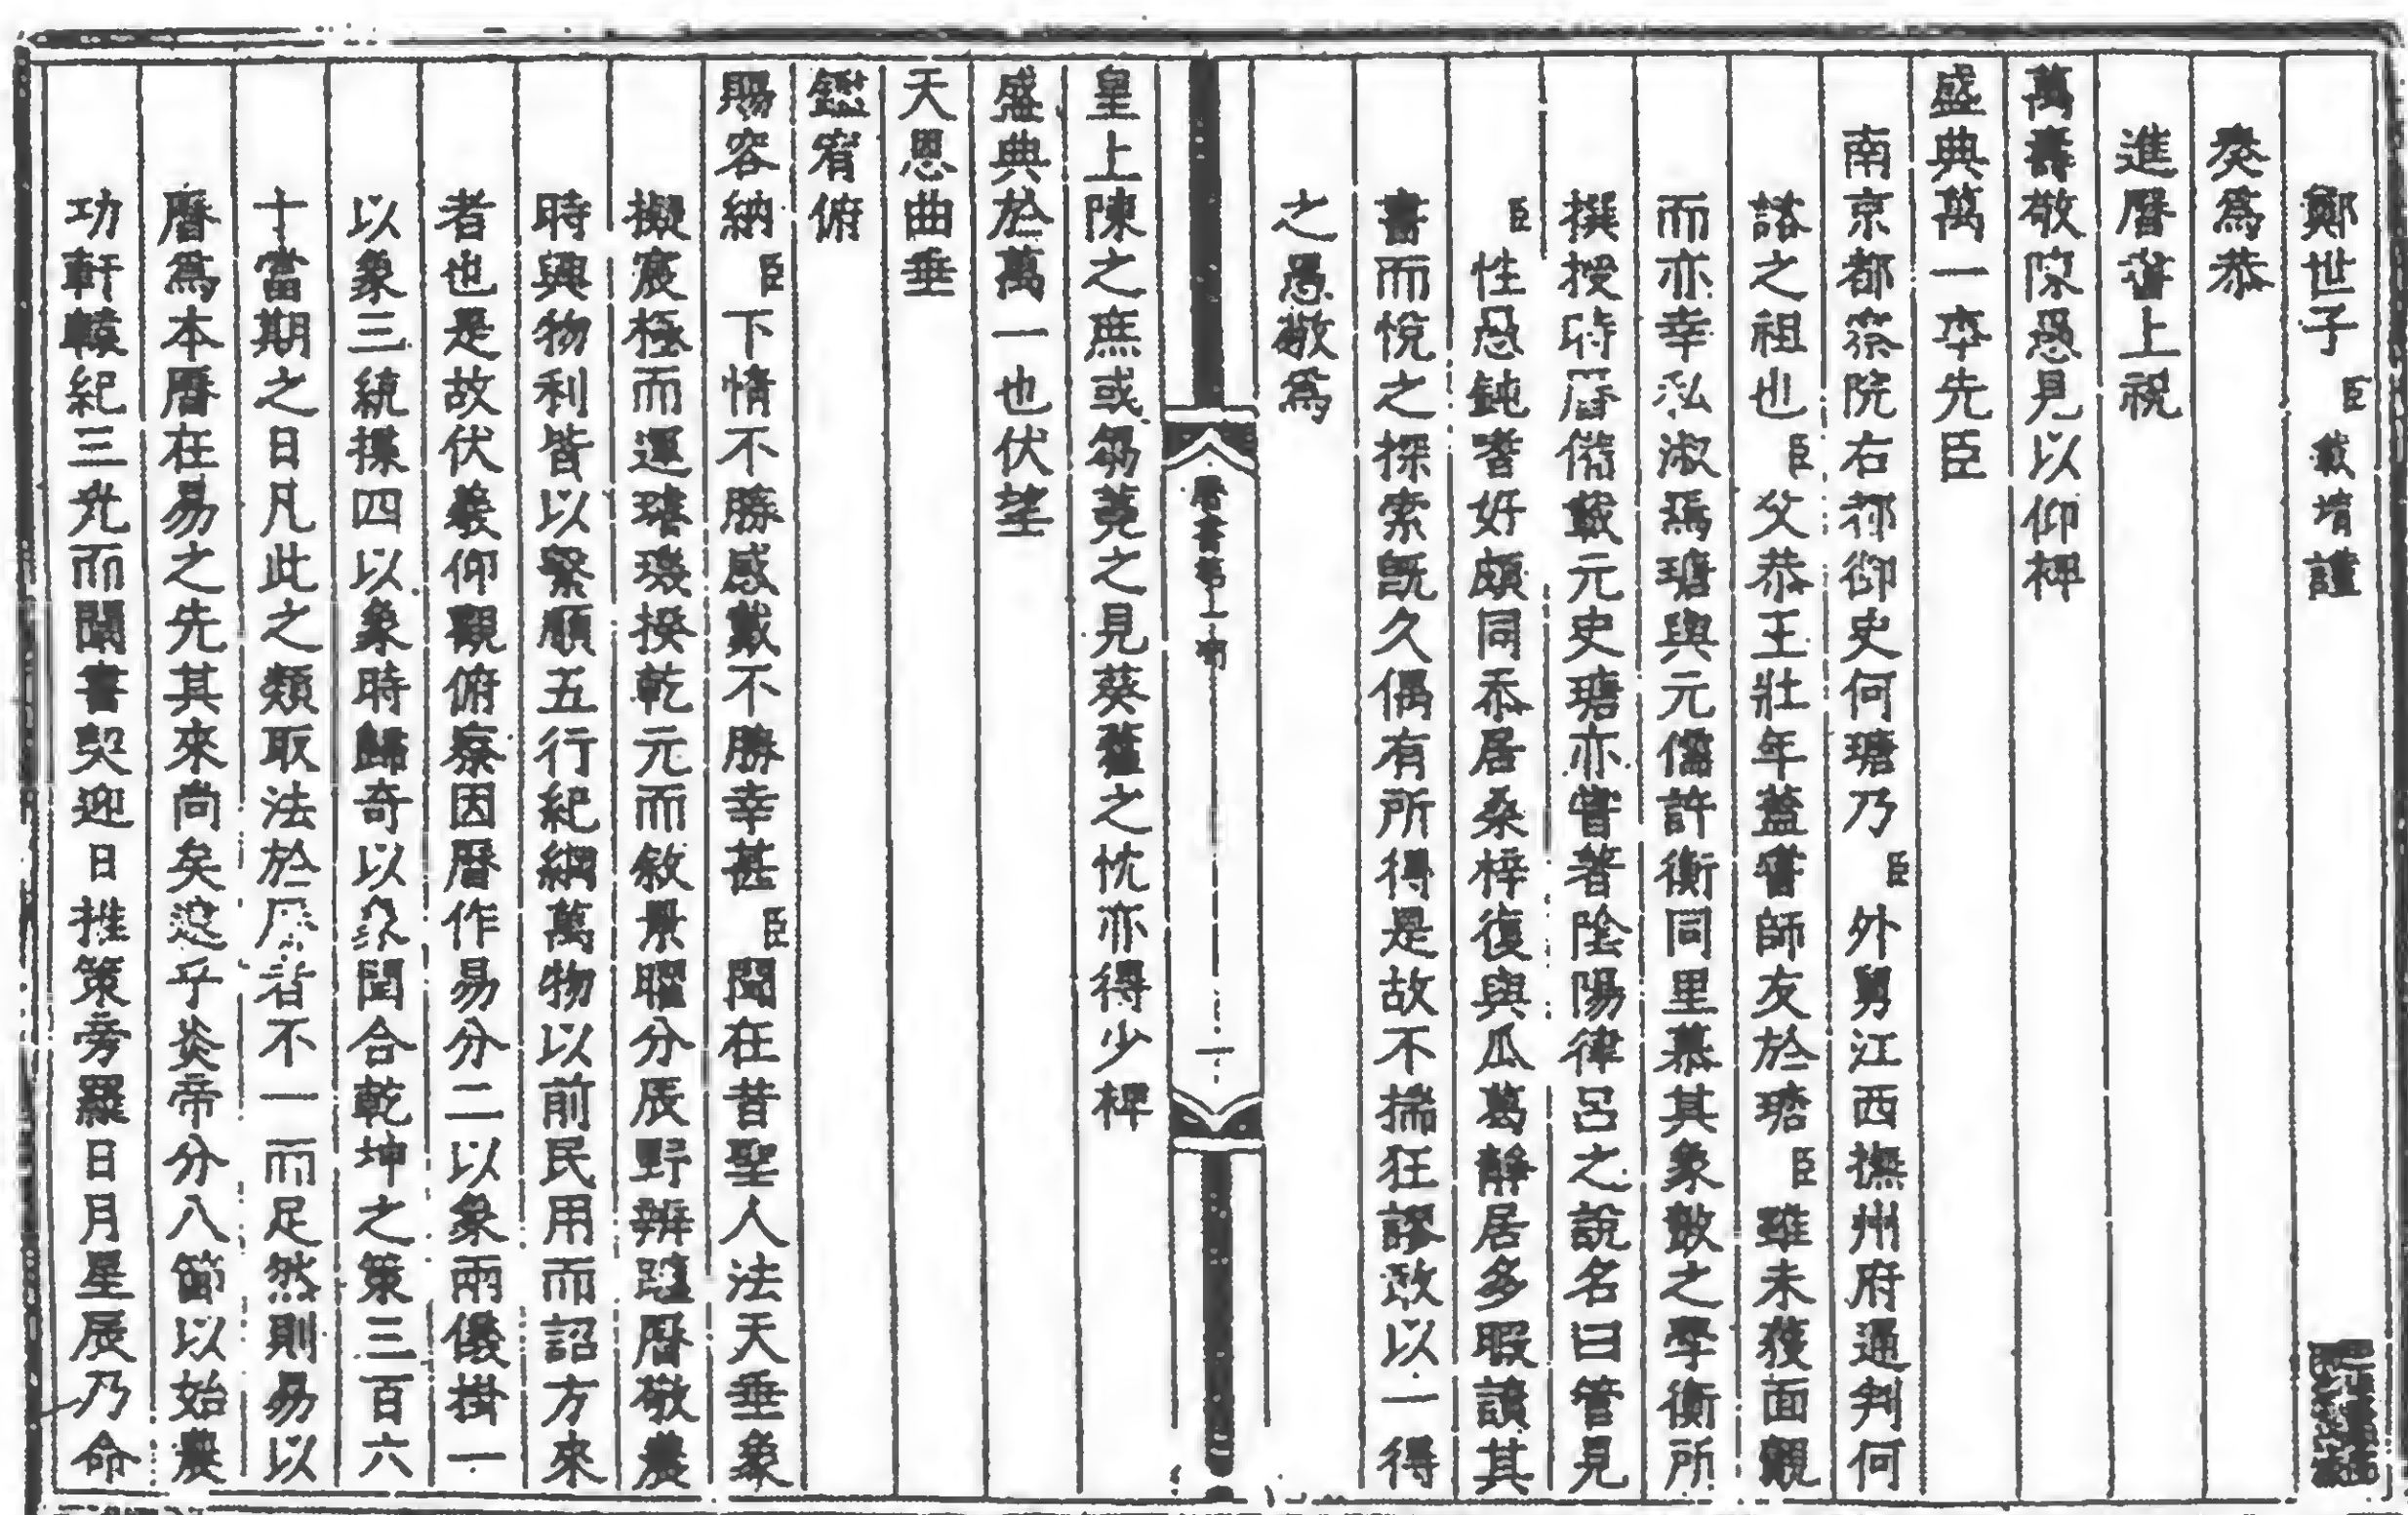 鄭世子臣載堉謹
奏爲恭
進曆書上祝
萬壽敬陳愚見以仰裨
盛典萬一本先臣
南京都察院右都御史何瑭乃臣外舅江西撫州府通判何
諮之祖也臣父恭王壯年蓋嘗師友於瑭臣雖未獲面覿
而亦幸私淑焉瑭與元儒許衡同里慕其象數之學衡所
撰授時曆備載元史瑭亦嘗著陰陽律呂之說名曰管見
臣性愚鈍嗜好頗同忝居桑梓復與瓜葛靜居多暇讀其
書而悅之探索既久偶有所得是故不揣狂謬敢以一得
之愚敬爲
曆書第一冊
一
皇上陳之庶或芻蕘之見葵藿之忱亦得少裨
盛典於萬一也伏望
天恩曲垂
鑑宥俯
賜容納臣下情不勝感戴不勝幸甚臣聞在昔聖人法天垂象
擬宸極而運璿璣揆乾元而敘景曜分辰野辨躔曆敬農
時興物利皆以繫順五行紀綱萬物以前民用而詔方來
者也是故伏羲仰觀俯察因曆作易分二以象兩儀掛一
以象三統揲四以象時歸奇以象閏合乾坤之策三百六
十當期之日凡此之類取法於曆者不一而足然則易以
曆爲本曆在易之先其來尚矣迨乎炎帝分八節以始農
功軒轅紀三光而闡書契迎日推策旁羅日月星辰乃命